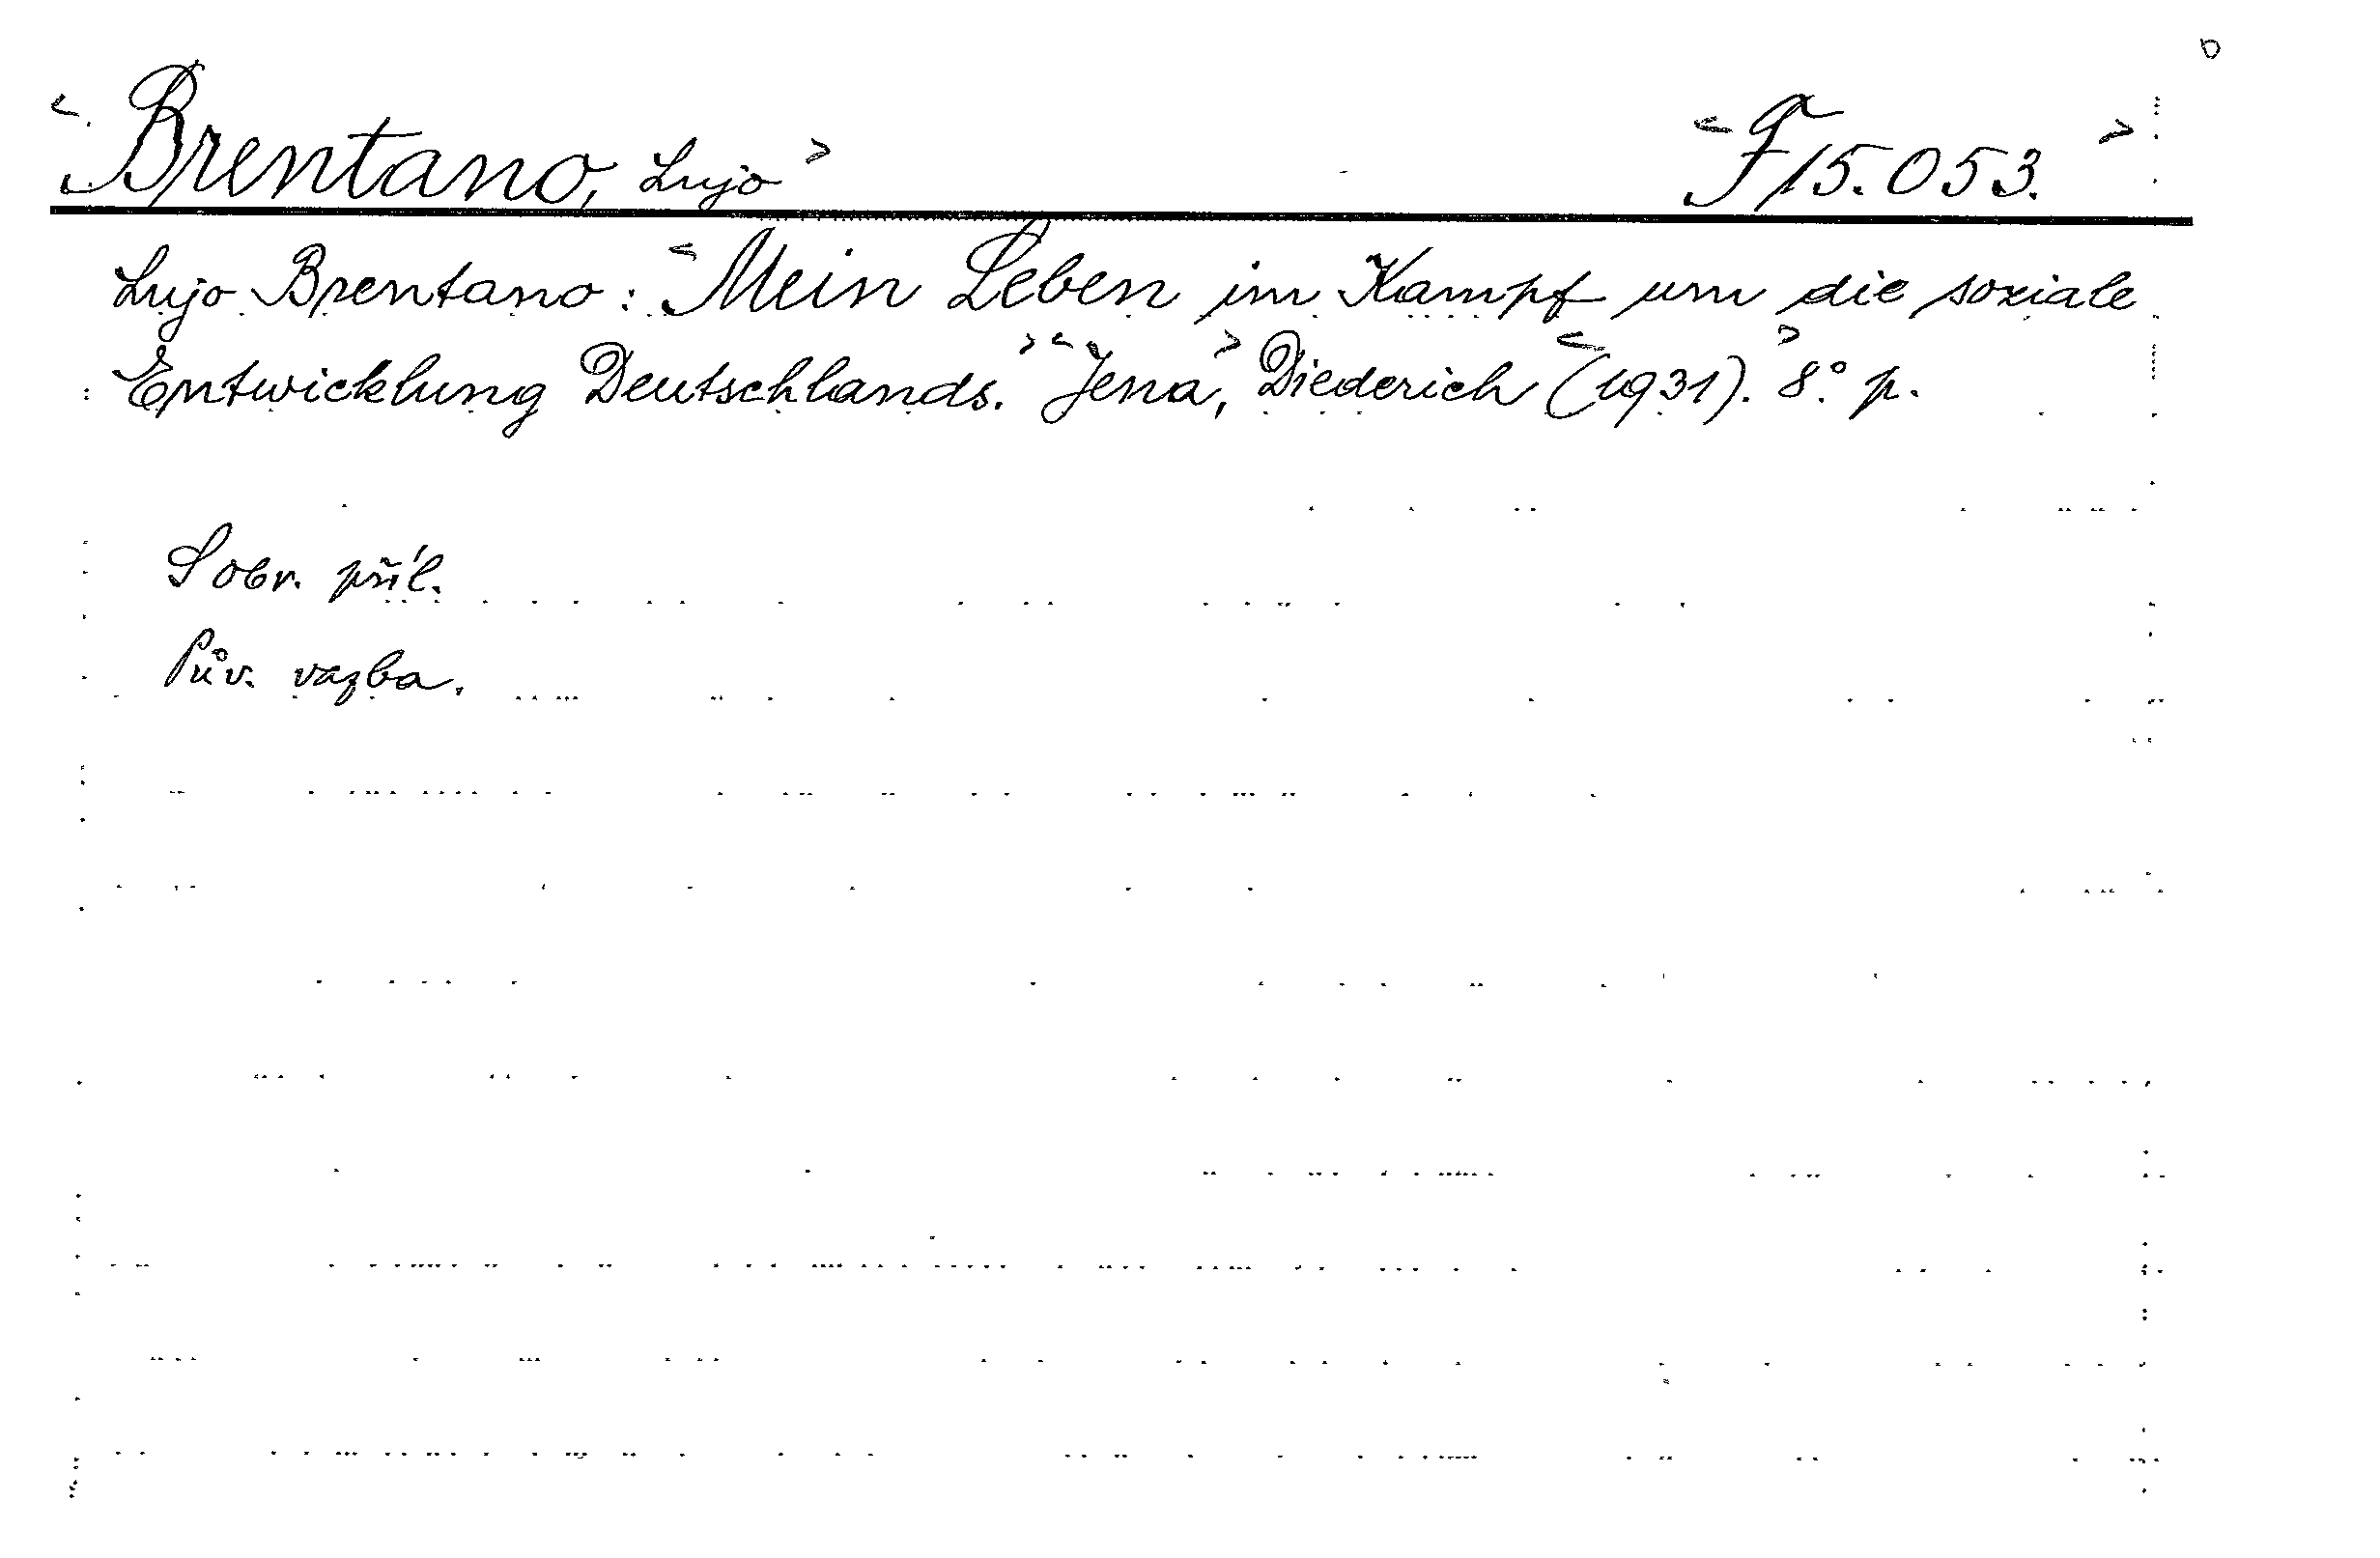 <Brentano, Lujo> <F 15.053.>
Lujo Brentano: <Mein Leben im Kampf um die soziale
Entwicklung Deutschlands.> <Jena,> Diederich <(1931).> 8° p.
S obr. příl.
Pův. vazba.